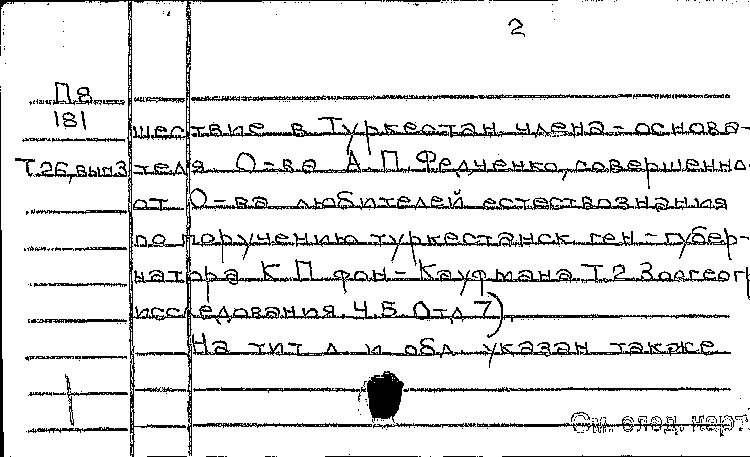 2
П8
181
шествие в Туркестан члена-основа-
Т.26, вып.3 теля О-ва А.П. Федченко, совершенно
от О-ва любителей естествознания
по поручению туркестанск ген-губер-
натора К П фон-Кауфмана Т.2 Зоогеогр
исследования. Ч.5 Отд 7).
На тит л и обл указан также
См. след. карт.